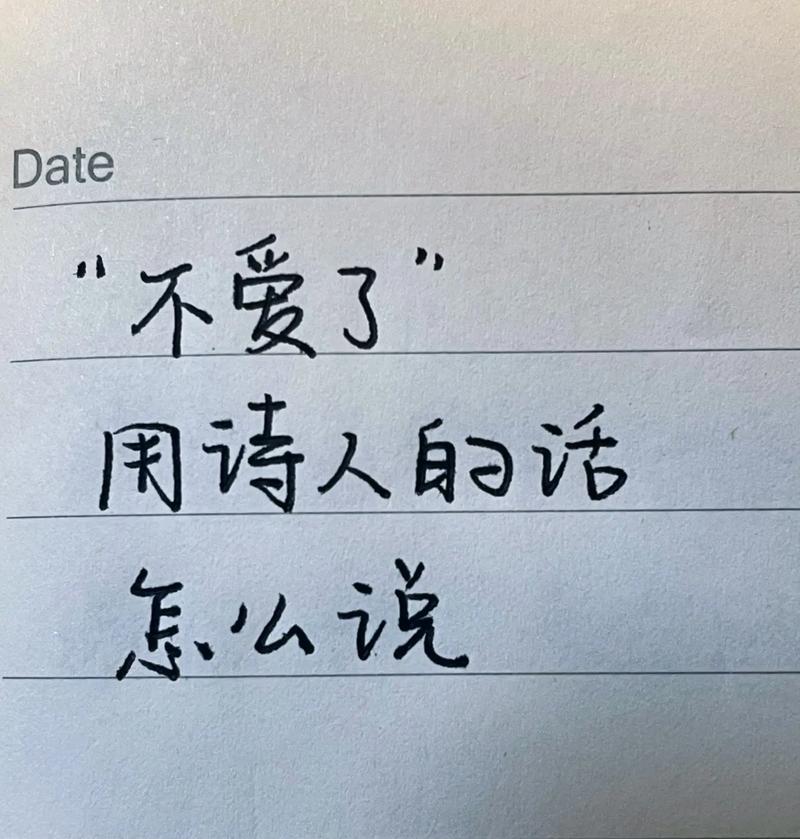 Date
“不爱了”
用诗人的话
怎么说